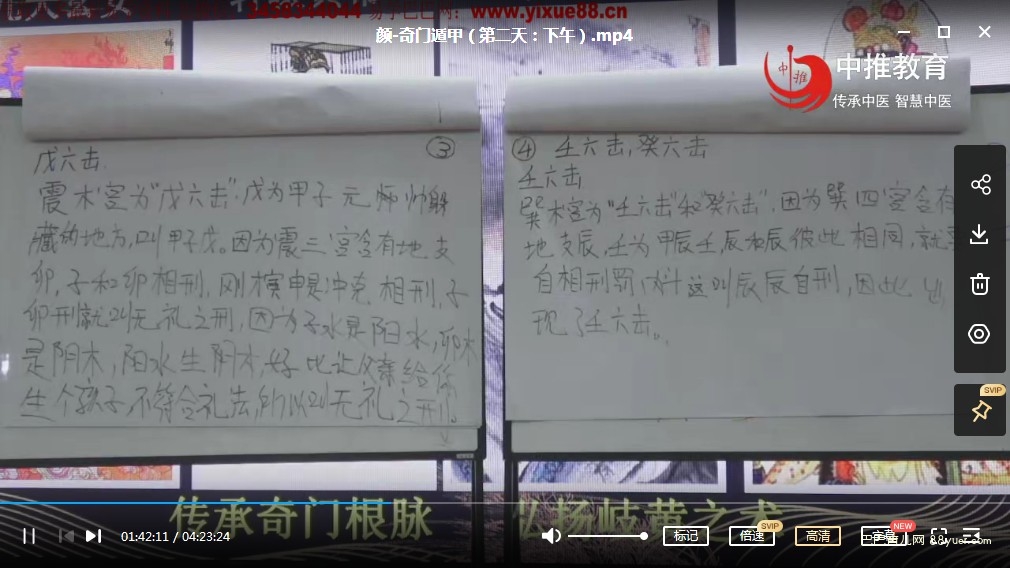 2459344044 易学巴巴网：www.yixue88.cn
颜-奇门遁甲（第二天：下午）.mp4
中推教育
传承中医 智慧中医
中推
③
戊六击.
震木宫为"戊六击".戊为甲子元帅躲
藏的地方,叫甲子戊。因为震三宫含有地支
卯,子和卯相刑,刚才寅申是冲克相刑,子
卯刑就叫无礼之刑,因为子水是阳水,卯木
是阴木,阳水生阴木,好比让父亲给你
生个孩子,不符合礼法,所以叫无礼之刑。
④ 壬六击,癸六击
壬六击
巽木宫为"壬六击"和"癸六击".因为巽四宫含有
地支辰,壬为甲辰壬,辰和辰彼此相同,就
自相刑罚,这叫辰辰自刑,因此出
现了壬六击。
传承奇门根脉 弘扬岐黄之术
01:42:11 / 04:23:24
标记
倍速
SVIP
高清
字幕
NEW
SVIP
88yuer.com